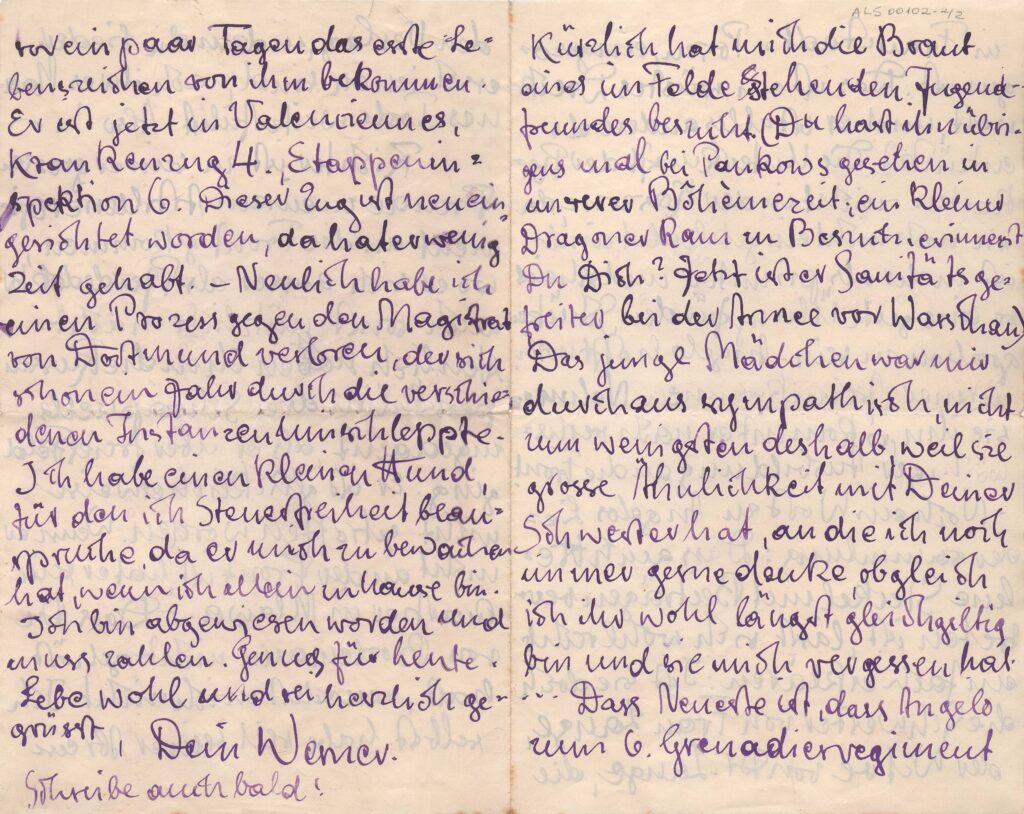 vor ein paar Tagen das erste Le-
benszeichen von ihm bekommen.
Er ist jetzt in Valenciennes,
Krankenzug 4., Etappenin=
spektion 6. Dieser Zug ist neu ein-
gerichtet worden, da hat er wenig
Zeit gehabt. – Neulich habe ich
einen Prozess gegen den Magistrat
von Dortmund verloren, der sich
schon ein Jahr durch die verschie-
denen Instanzen hinschleppte.
Ich habe einen kleinen Hund,
für den ich Steuerfreiheit bean-
spruche, da er mich zu bewachen
hat, wenn ich allein im Hause bin.
Ich bin abgewiesen worden und
muss zahlen. Genug für heute.
Lebe wohl und sei herzlich ge-
grüsst,
Dein Werner.
Schreibe auch bald!
ALS 00102-2/2
Kürzlich hat mich die Braut
eines im Felde stehenden Jugend-
freundes besucht. (Du hast ihn übri-
gens mal bei Pankows gesehen in
unserer Bohèmezeit; ein kleiner
Dragoner kam zu Besuch. erinnerst
Du Dich? Jetzt ist er Sanitätsge-
freiter bei der Armee vor Warschau)
Das junge Mädchen war mir
durchaus sympathisch, nicht
zum wenigsten deshalb, weil sie
grosse Ähnlichkeit mit Deiner
Schwester hat, an die ich noch
immer gerne denke obgleich
ich ihr wohl längst gleichgeltig
bin und sie mich vergessen hat.
Dass Neueste ist, dass Angelo
zum 6. Grenadierregiment